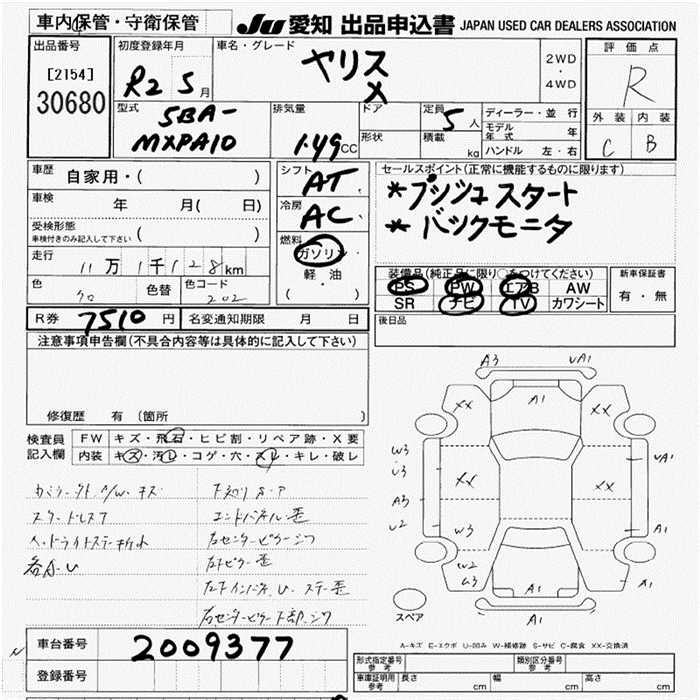 車内保管・守衛保管
JU 愛知 出品申込書 JAPAN USED CAR DEALERS ASSOCIATION
出品番号
[2154]
30680
初度登録年月
R2 5月
車名・グレード
ヤリス
X
2WD
・
4WD
評価点
R
外装 内装
C B
型式
5BA-
MXPA10
排気量
1.49CC
ドア
形状
定員 5人
積載 kg
ディーラー・並行
モデル年式 年
ハンドル 左・右
車歴 自家用・( )
車検 年 月( 日)
受検形態
車検付きのみ記入して下さい ( )
走行 11万1千128km
色 クロ 色替 色コード 202
シフト
AT
冷房
AC
燃料
ガソリン
軽・油
( ・ )
セールスポイント(正常に機能するものに限ります)
*プッシュスタート
*バックモニタ
装備品(純正品に限り○をつけてください)
PS PW エアB AW
SR ナビ TV カワシート
新車保証書
有・無
後日品
R券 7510円 名変通知期限 月 日
注意事項申告欄(不具合内容等は具体的に記入して下さい)
修復歴 有 (箇所
検査員
記入欄
FW キズ・飛石・ヒビ割・リペア跡・X要
内装 キズ・汚レ・コゲ・穴・スレ・キレ・破レ
スタッドレス
エンドパネル歪
A3 UA1
XX A1 XX
W3
U3
UA1
XX XX
A3
U2
W3
A1
W2
U3 A1 A1
A1
スペア
A-キズ E-エクボ U-凹み W-補修跡 S-サビ C-腐食 XX-交換済
車台番号 2009377
登録番号
形式指定番号 参考
類別区分番号 参考
車庫証明用 参考 長さ cm 幅 cm 高さ cm